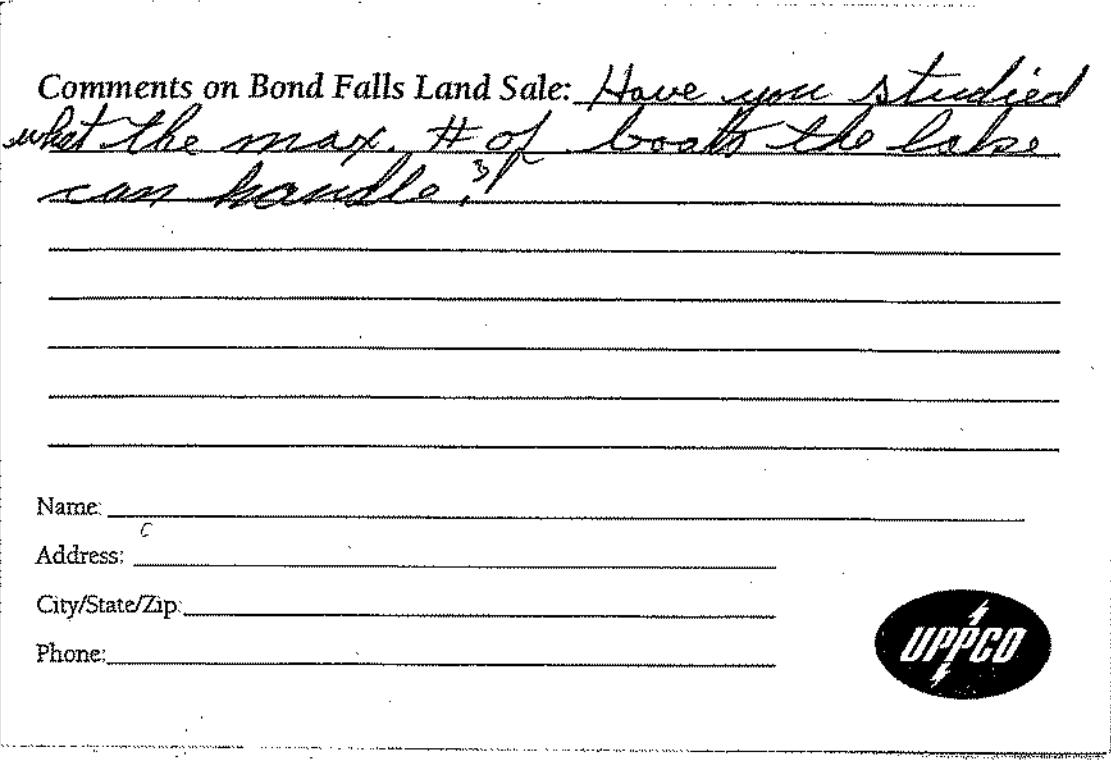 Comments on Bond Falls Land Sale: Have you studied
what the max. # of boats the lake
can handle?
Name:
Address:
City/State/Zip:
Phone:
UPPCO